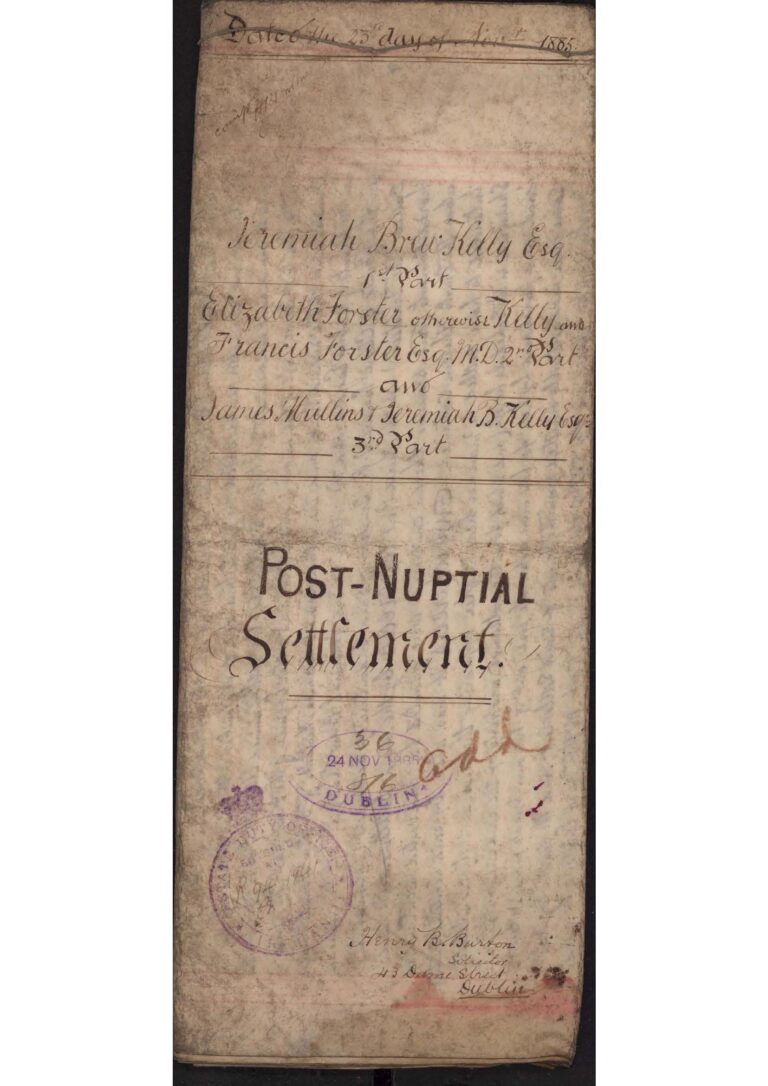 Dated the 23rd day of Novr. 1885
Jeremiah Brew Kelly Esq.
1st Part
Elizabeth Forster otherwise Kelly and
Francis Forster Esq. M.D. 2nd Part
and
James Mullins & Jeremiah B. Kelly Esqs
3rd Part
POST-NUPTIAL
Settlement.
36
24 NOV 1885
816
DUBLIN
add
ESTATE DUTY OFFICE
Henry B. Burton
Solicitor
43 Dame Street
Dublin